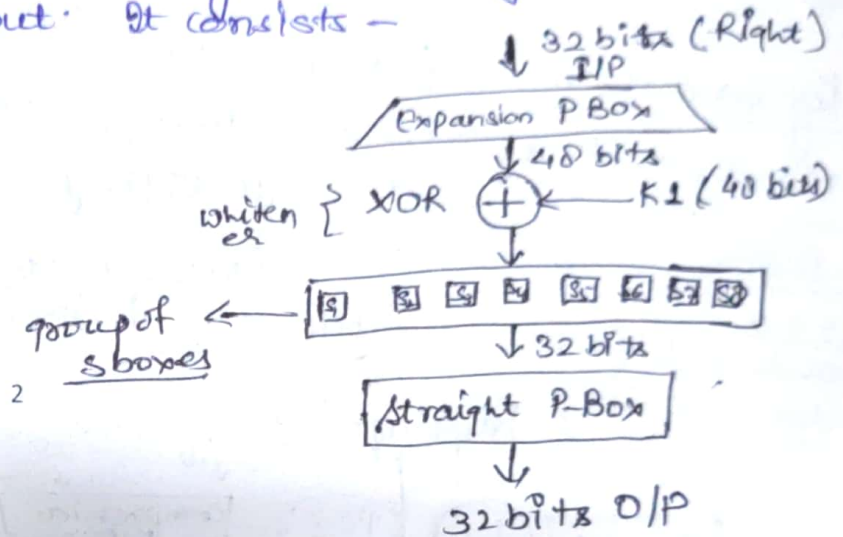 out. It consists –
32 bits (Right)
I/P
Expansion P Box
48 bits
whiten
er } XOR + K1 (48 bits)
S1 S2 S3 S4 S5 S6 S7 S8
group of
s boxes
32 bits
2
Straight P-Box
32 bits O/P